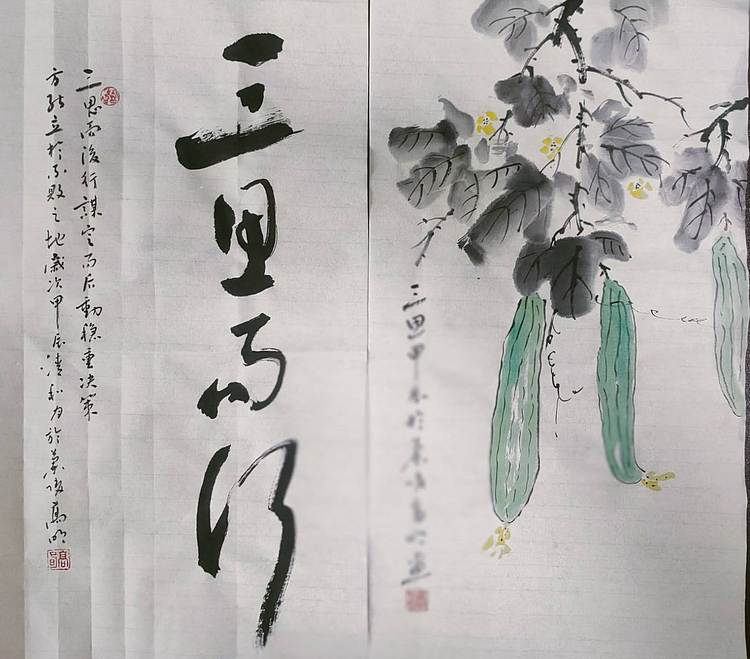 三思而行
三思而後行謀定而后動稳重决策
方能立於不敗之地歲次甲辰清和月於高明
三思甲辰於高明画